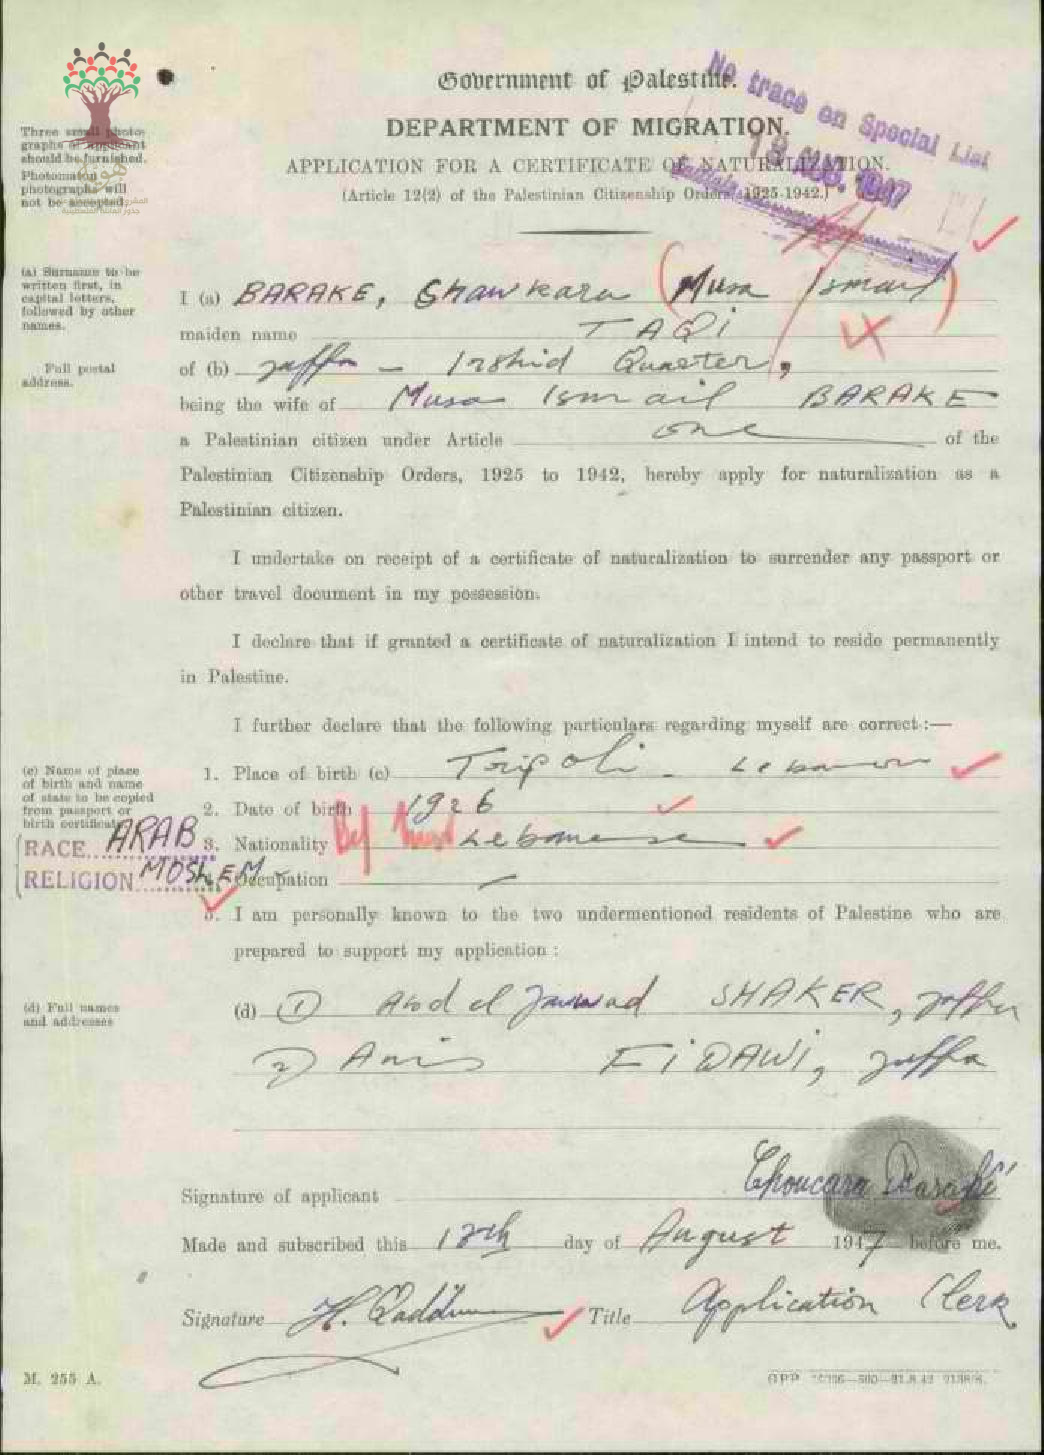 Government of Palestine.
DEPARTMENT OF MIGRATION.
APPLICATION FOR A CERTIFICATE OF NATURALIZATION.
(Article 12(2) of the Palestinian Citizenship Orders, 1925-1942.)
No trace on Special List
AUG. 1947
Three small photo-
graphs of applicant
should be furnished.
Photomaton
photographs will
not be accepted.
(a) Surname to be
written first, in
capital letters,
followed by other
names.
I (a) BARAKE, Shawkara (Musa Ismail)
maiden name TAQI
Full postal
address.
of (b) Jaffa - Irshid Quarter,
being the wife of Musa Ismail BARAKE
a Palestinian citizen under Article one of the
Palestinian Citizenship Orders, 1925 to 1942, hereby apply for naturalization as a
Palestinian citizen.
I undertake on receipt of a certificate of naturalization to surrender any passport or
other travel document in my possession.
I declare that if granted a certificate of naturalization I intend to reside permanently
in Palestine.
I further declare that the following particulars regarding myself are correct:—
(c) Name of place
of birth and name
of state to be copied
from passport or
birth certificate
1. Place of birth (c) Tripoli - Lebanon
2. Date of birth 1926
RACE ARAB
3. Nationality Lebanese
RELIGION MOSLEM
Occupation —
5. I am personally known to the two undermentioned residents of Palestine who are
prepared to support my application:
(d) Full names
and addresses
(d) 1) Abd el Jawad SHAKER, Jaffa
2) Anis FIDAWI, Jaffa
Signature of applicant Choucara Barake
Made and subscribed this 12th day of August 1947 before me.
Signature H. Qaddumi Title Application Clerk
M. 255 A.